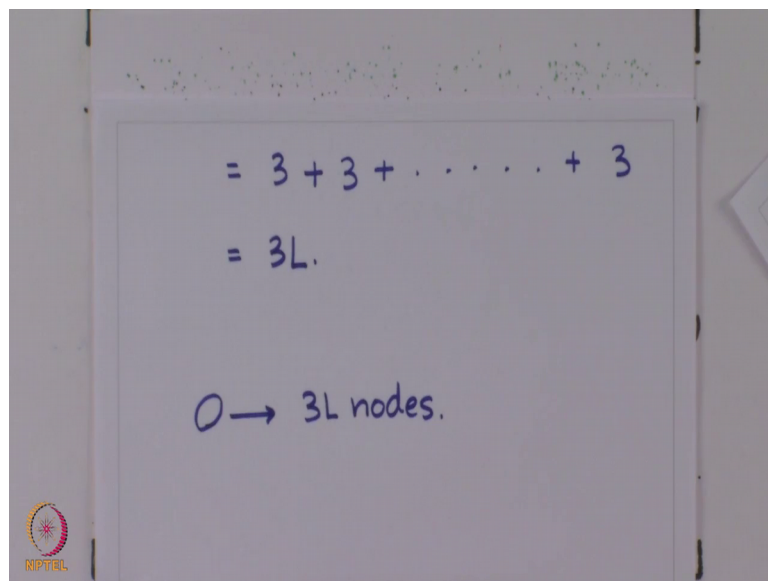 = 3 + 3 + . . . . . . + 3
= 3L.
O → 3L nodes.
NPTEL